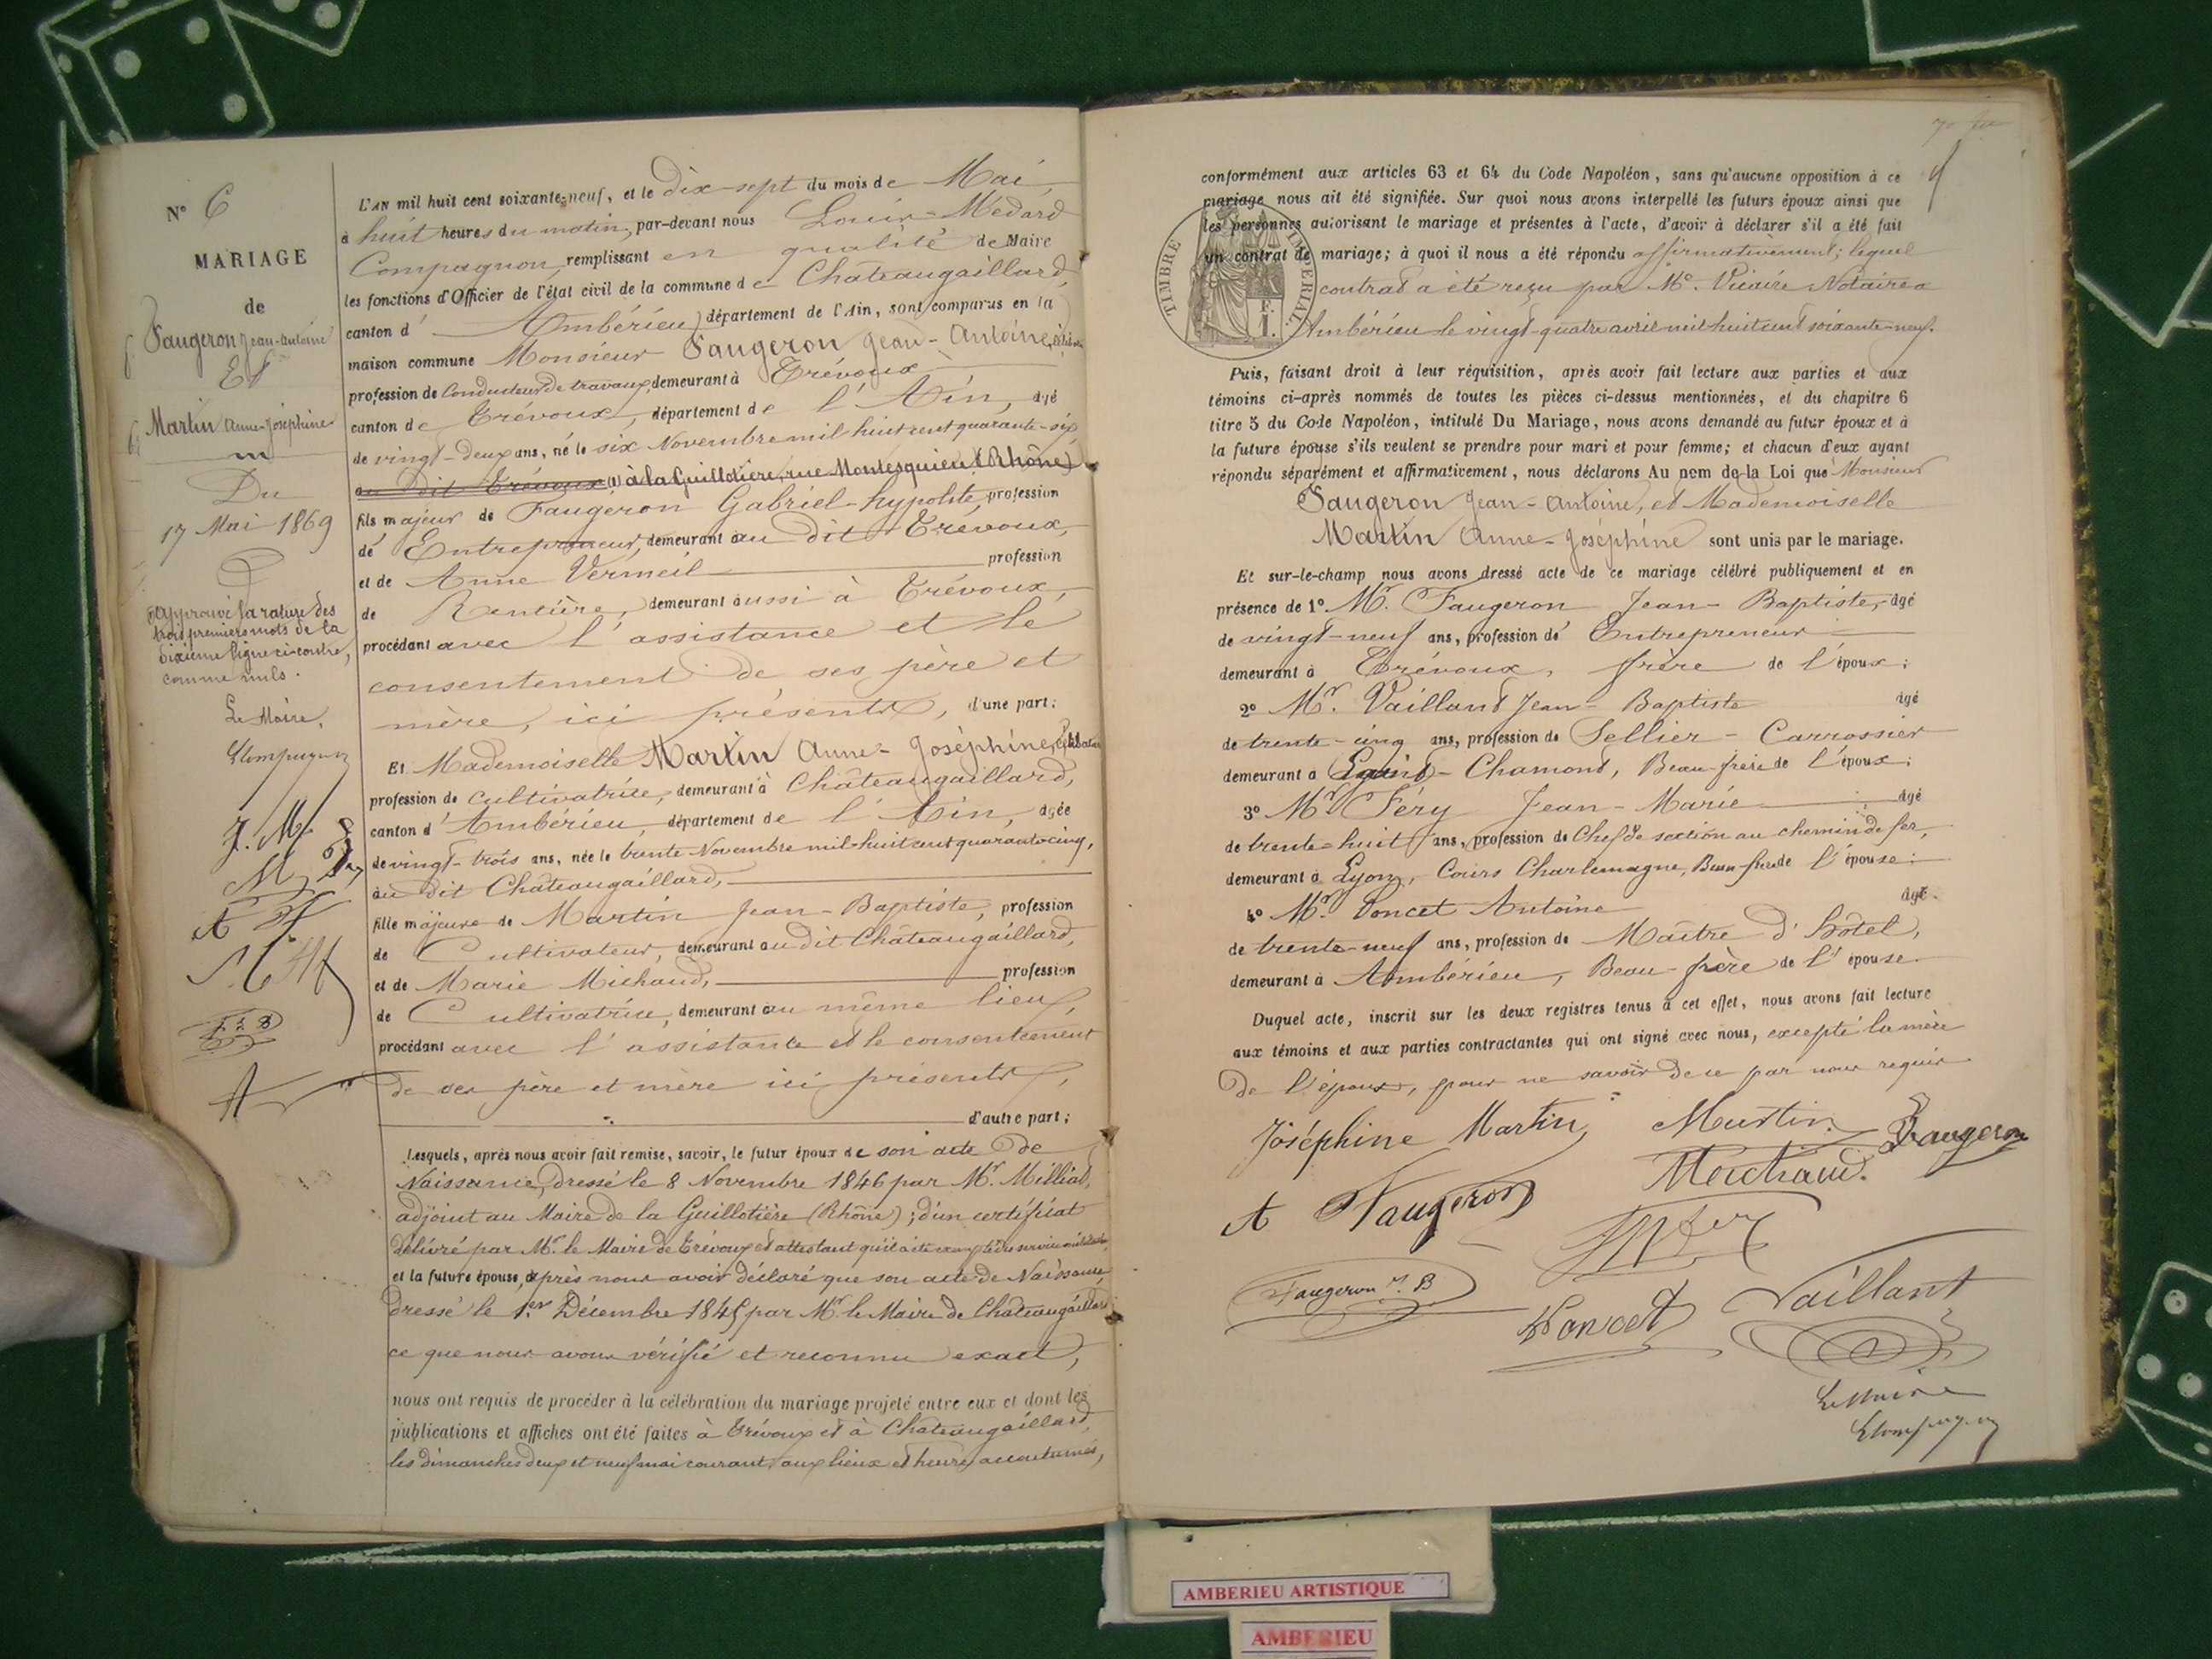 N° 6
MARIAGE
de
Faugeron Jean-Antoine
Et
Martin Anne-Joséphine
Du
17 Mai 1869
Approuvé la rature des
trois premiers mots de la
dixième ligne ci-contre,
comme nuls.
Le Maire,
LCompagnon
J. M.
A F
L'AN mil huit cent soixante-neuf, et le dix-sept du mois de Mai,
à huit heures du matin, par-devant nous Louis-Médard
Compagnon, remplissant en qualité de Maire
les fonctions d'Officier de l'état civil de la commune de Châteaugaillard,
canton d'Ambérieu, département de l'Ain, sont comparus en la
maison commune Monsieur Faugeron Jean-Antoine, célibataire
profession de Conducteur de travaux, demeurant à Trévoux
canton de Trévoux, département de l'Ain, âgé
de vingt-deux ans, né le six Novembre mil huit cent quarante-six
au dit Trévoux (1) à la Guillotière, rue Montesquieu (Rhône)
fils majeur de Faugeron Gabriel-hypolite, profession
de Entrepreneur, demeurant au dit Trévoux,
et de Anne Vermeil profession
de Rentière, demeurant aussi à Trévoux,
procédant avec l'assistance et le
consentement de ses père et
mère, ici présents, d'une part;
Et Mademoiselle Martin Anne-Joséphine, célibataire
profession de cultivatrice, demeurant à Châteaugaillard,
canton d'Ambérieu, département de l'Ain, âgée
de vingt-trois ans, née le trente Novembre mil huit cent quarante-cinq,
au dit Châteaugaillard,
fille majeure de Martin Jean-Baptiste, profession
de Cultivateur, demeurant au dit Châteaugaillard,
et de Marie Michaud, profession
de Cultivatrice, demeurant au même lieu,
procédant avec l'assistance et le consentement
de ses père et mère ici présents,
d'autre part;
Lesquels, après nous avoir fait remise, savoir, le futur époux de son acte de
Naissance, dressé le 8 Novembre 1846 par Mr. Milliat,
adjoint au Maire de la Guillotière (Rhône); d'un certificat
délivré par Mr. le Maire de Trévoux et attestant qu'il a été exempté du service militaire,
et la future épouse, après nous avoir déclaré que son acte de Naissance,
dressé le 1er Décembre 1845 par Mr. le Maire de Châteaugaillard
ce que nous avons vérifié et reconnu exact,
nous ont requis de procéder à la célébration du mariage projeté entre eux et dont les
publications et affiches ont été faites à Trévoux et à Châteaugaillard,
les dimanches deux et neuf mai courant, aux lieux et heures accoutumés,
conformément aux articles 63 et 64 du Code Napoléon, sans qu'aucune opposition à ce
mariage nous ait été signifiée. Sur quoi nous avons interpellé les futurs époux ainsi que
les personnes autorisant le mariage et présentes à l'acte, d'avoir à déclarer s'il a été fait
un contrat de mariage; à quoi il nous a été répondu affirmativement; lequel
contrat a été reçu par Me. Vicaire Notaire a
Ambérieu le vingt-quatre avril mil huit cent soixante-neuf.
TIMBRE IMPERIAL.
F.
1.
Puis, faisant droit à leur réquisition, après avoir fait lecture aux parties et aux
témoins ci-après nommés de toutes les pièces ci-dessus mentionnées, et du chapitre 6
titre 5 du Code Napoléon, intitulé Du Mariage, nous avons demandé au futur époux et à
la future épouse s'ils veulent se prendre pour mari et pour femme; et chacun d'eux ayant
répondu séparément et affirmativement, nous déclarons Au nom de la Loi que Monsieur
Faugeron Jean-Antoine, et Mademoiselle
Martin Anne-Joséphine sont unis par le mariage.
Et sur-le-champ nous avons dressé acte de ce mariage célébré publiquement et en
présence de 1° Mr. Faugeron Jean-Baptiste, âgé
de vingt-neuf ans, profession de Entrepreneur
demeurant à Trévoux, frère de l'époux;
2° Mr. Vaillant Jean-Baptiste âgé
de trente-cinq ans, profession de Sellier-Carrossier
demeurant à Saint-Chamond, Beau frère de l'époux;
3° Mr Féry Jean-Marie âgé
de trente-huit ans, profession de Chef de section au chemin de fer,
demeurant à Lyon, Cours Charlemagne, Beau-frère de l'épouse;
4° Mr. Poncet Antoine âgé.
de trente-neuf ans, profession de Maître d'hôtel,
demeurant à Ambérieu, Beau-frère de l'épouse.
Duquel acte, inscrit sur les deux registres tenus à cet effet, nous avons fait lecture
aux témoins et aux parties contractantes qui ont signé avec nous, excepté la mère
de l'époux, pour ne savoir de ce par nous requis
Joséphine Martin Martin Faugeron
A Faugeron Michaud.
Faugeron J. B
Poncet Vaillant
Le Maire
LCompagnon
AMBERIEU ARTISTIQUE
AMBERIEU